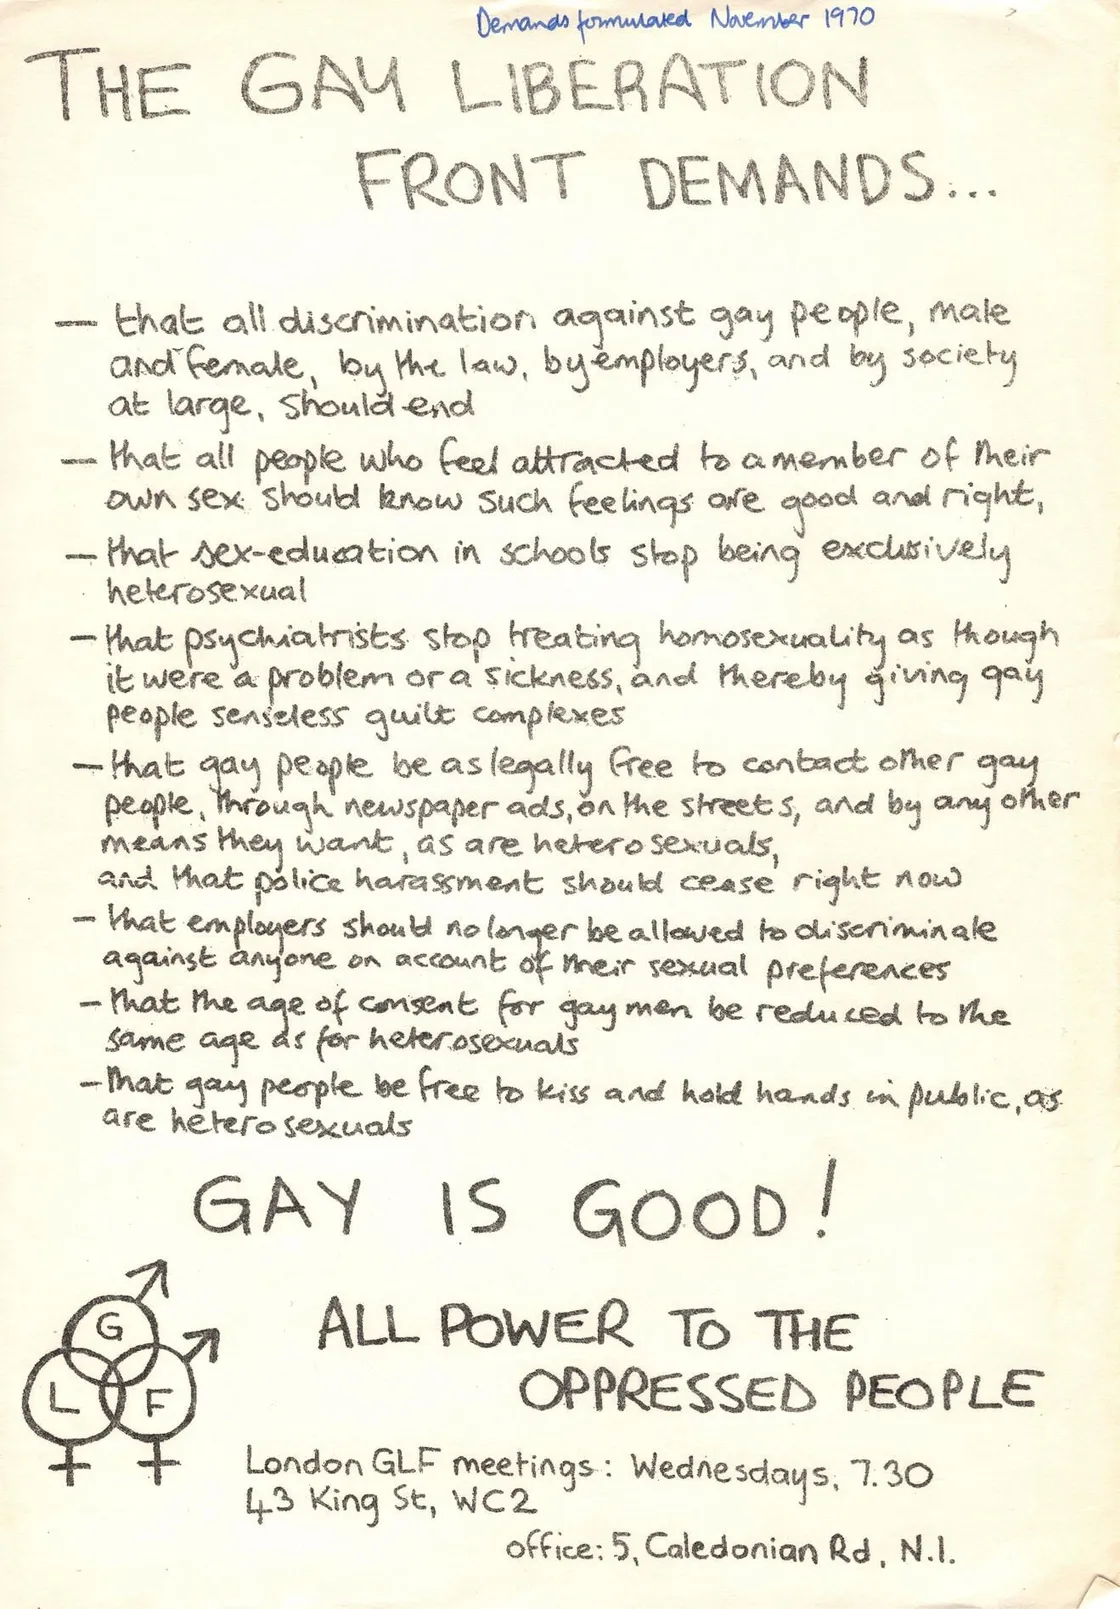 Demands formulated November 1970
THE GAY LIBERATION
FRONT DEMANDS...
— that all discrimination against gay people, male
and female, by the law, by employers, and by society
at large, should end
— that all people who feel attracted to a member of their
own sex should know such feelings are good and right,
— that sex-education in schools stop being exclusively
heterosexual
— that psychiatrists stop treating homosexuality as though
it were a problem or a sickness, and thereby giving gay
people senseless guilt complexes
— that gay people be as legally free to contact other gay
people, through newspaper ads, on the streets, and by any other
means they want, as are heterosexuals,
and that police harassment should cease right now
— that employers should no longer be allowed to discriminate
against anyone on account of their sexual preferences
— that the age of consent for gay men be reduced to the
same age as for heterosexuals
— that gay people be free to kiss and hold hands in public, as
are heterosexuals
GAY IS GOOD!
G
L F
ALL POWER TO THE
OPPRESSED PEOPLE
London GLF meetings: Wednesdays, 7.30
43 King St, WC2
office: 5, Caledonian Rd, N.1.